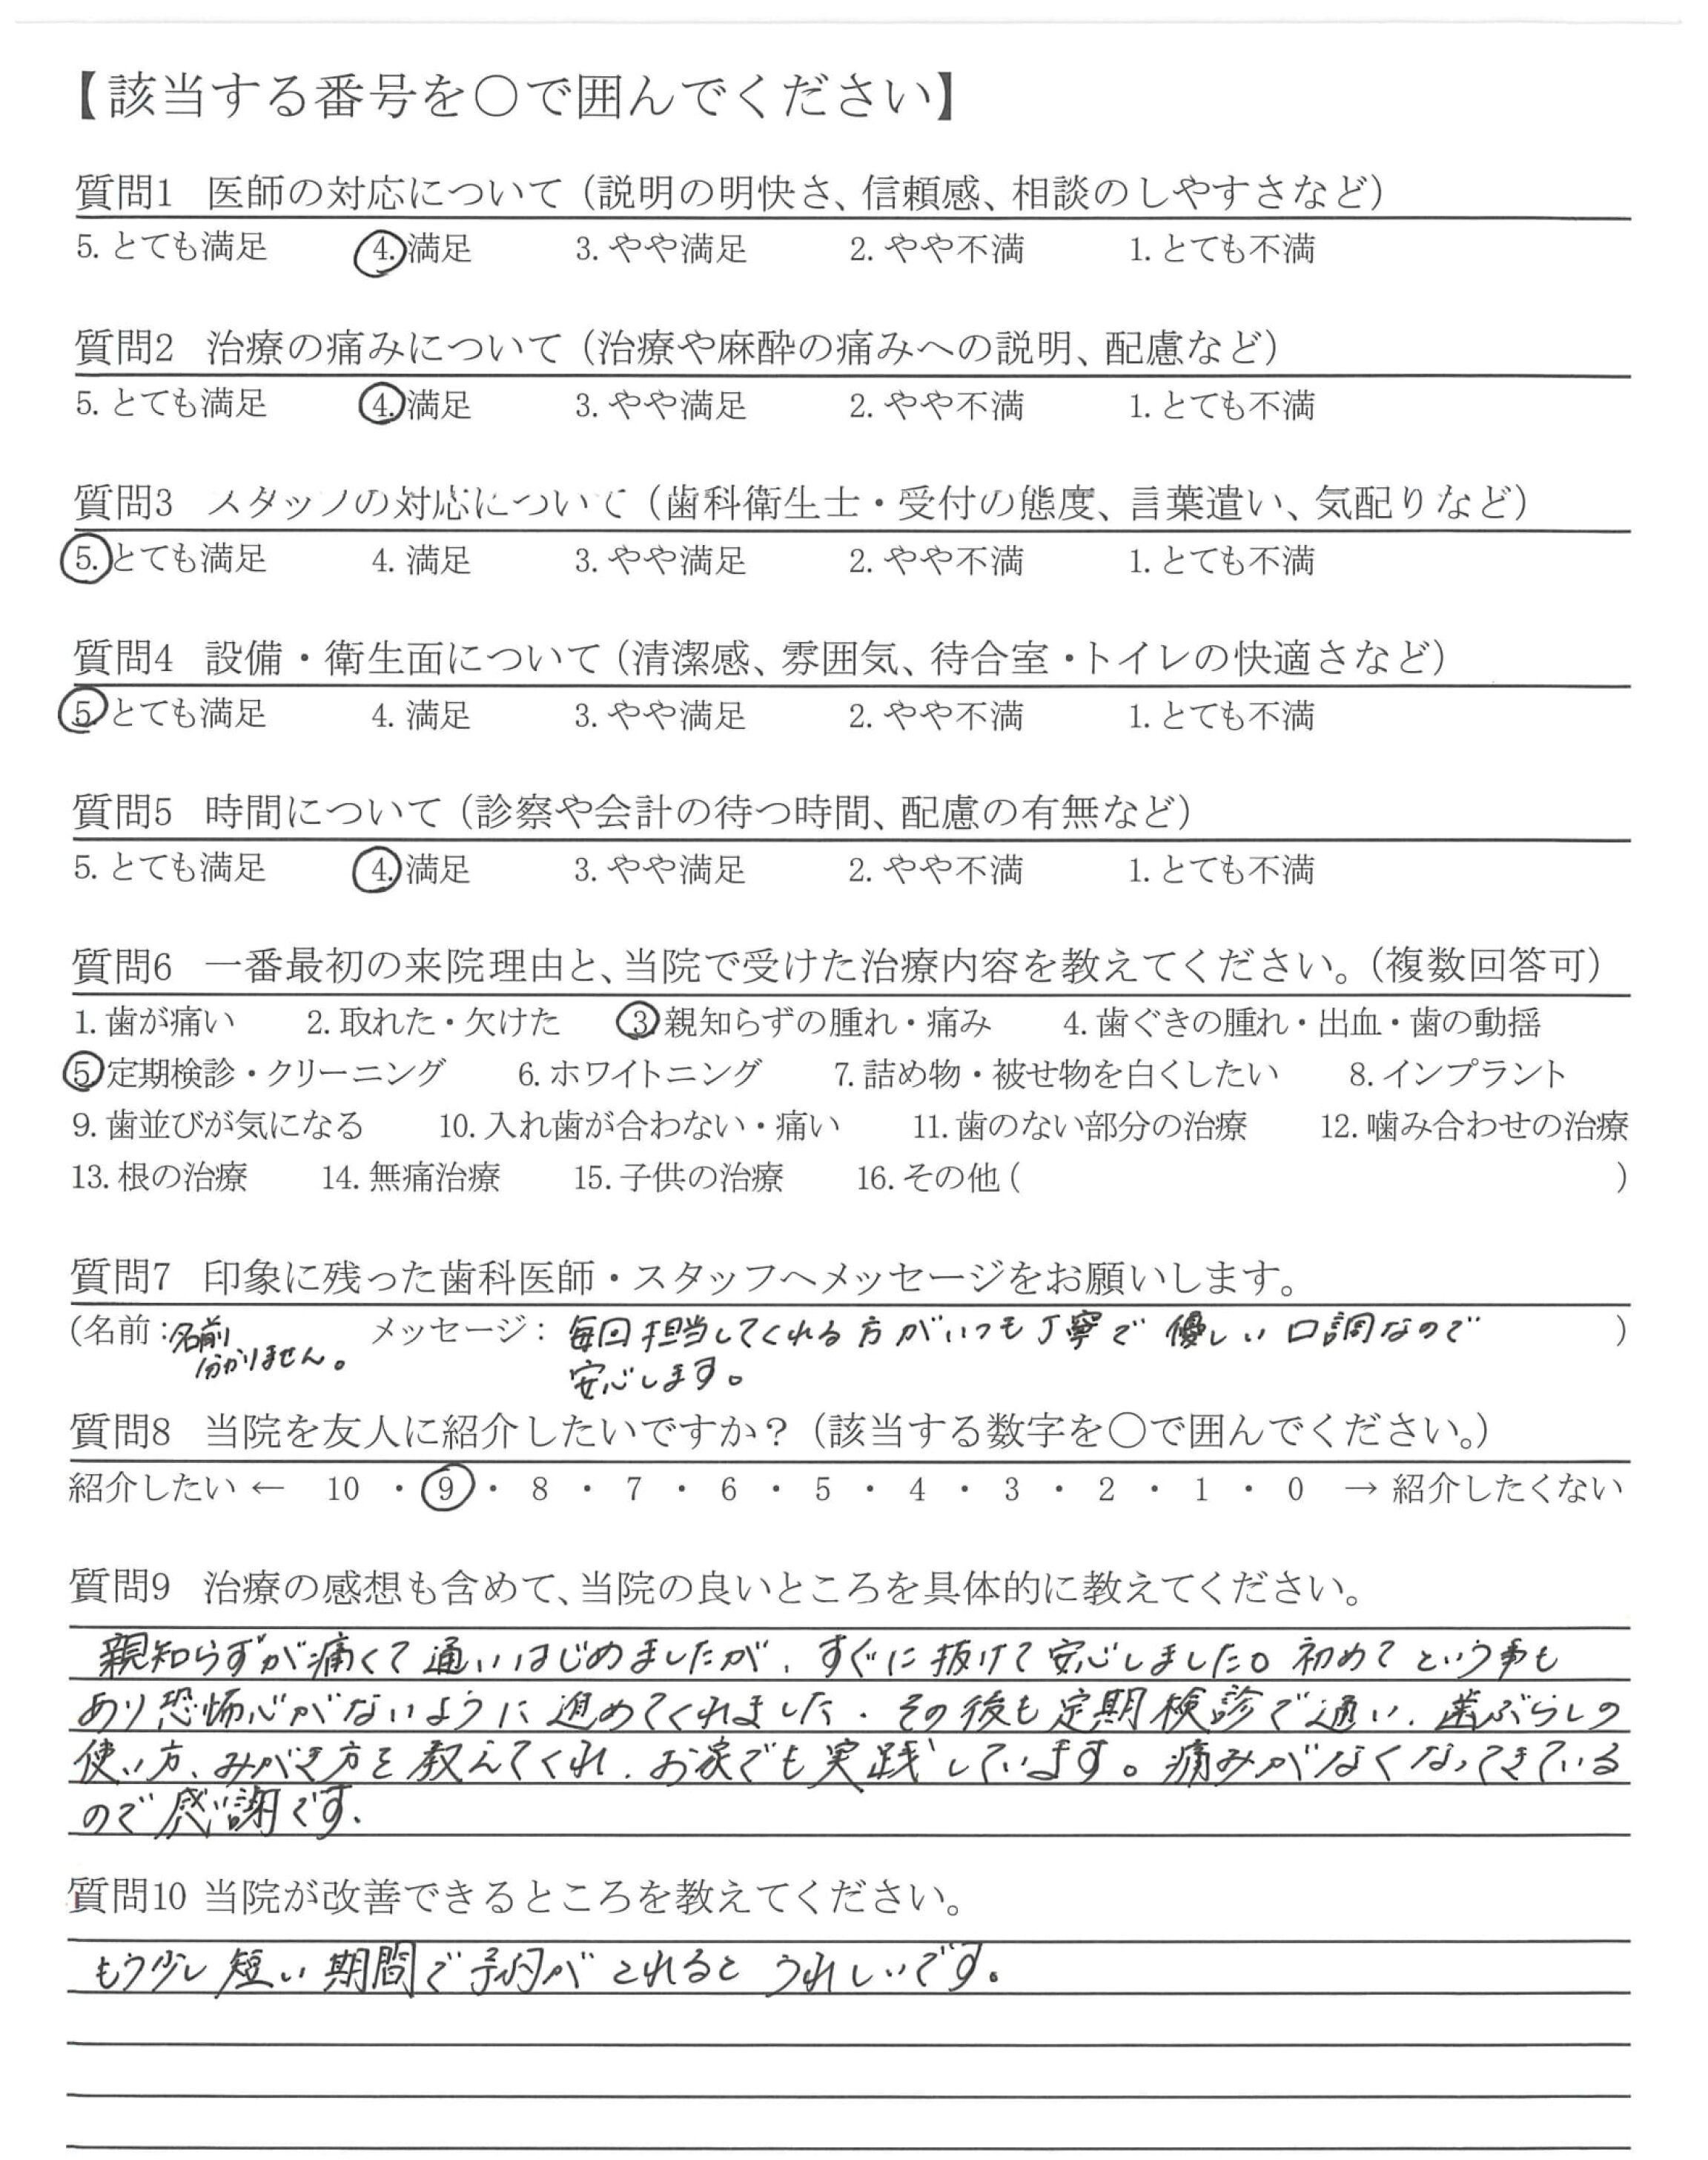 【該当する番号を〇で囲んでください】
質問1 医師の対応について（説明の明快さ、信頼感、相談のしやすさなど）
5. とても満足 4. 満足 3. やや満足 2. やや不満 1. とても不満
質問2 治療の痛みについて（治療や麻酔の痛みへの説明、配慮など）
5. とても満足 4. 満足 3. やや満足 2. やや不満 1. とても不満
質問3 スタッフの対応について（歯科衛生士・受付の態度、言葉遣い、気配りなど）
5. とても満足 4. 満足 3. やや満足 2. やや不満 1. とても不満
質問4 設備・衛生面について（清潔感、雰囲気、待合室・トイレの快適さなど）
5. とても満足 4. 満足 3. やや満足 2. やや不満 1. とても不満
質問5 時間について（診察や会計の待つ時間、配慮の有無など）
5. とても満足 4. 満足 3. やや満足 2. やや不満 1. とても不満
質問6 一番最初の来院理由と、当院で受けた治療内容を教えてください。（複数回答可）
1. 歯が痛い 2. 取れた・欠けた 3. 親知らずの腫れ・痛み 4. 歯ぐきの腫れ・出血・歯の動揺
5. 定期検診・クリーニング 6. ホワイトニング 7. 詰め物・被せ物を白くしたい 8. インプラント
9. 歯並びが気になる 10. 入れ歯が合わない・痛い 11. 歯のない部分の治療 12. 噛み合わせの治療
13. 根の治療 14. 無痛治療 15. 子供の治療 16. その他（ ）
質問7 印象に残った歯科医師・スタッフへメッセージをお願いします。
（名前：名前分かりません。 メッセージ：毎回担当してくれる方がいつも丁寧で優しい口調なので ）
安心します。
質問8 当院を友人に紹介したいですか？（該当する数字を〇で囲んでください。）
紹介したい ← 10 ・ 9 ・ 8 ・ 7 ・ 6 ・ 5 ・ 4 ・ 3 ・ 2 ・ 1 ・ 0 → 紹介したくない
質問9 治療の感想も含めて、当院の良いところを具体的に教えてください。
親知らずが痛くて通いはじめましたが、すぐに抜けて安心しました。初めてという事も
あり恐怖心がないように進めてくれました。その後も定期検診で通い、歯ぶらしの
使い方、みがき方を教えてくれ、お家でも実践しています。痛みがなくなってきている
ので感謝です。
質問10 当院が改善できるところを教えてください。
もう少し短い期間で予約がとれるとうれしいです。